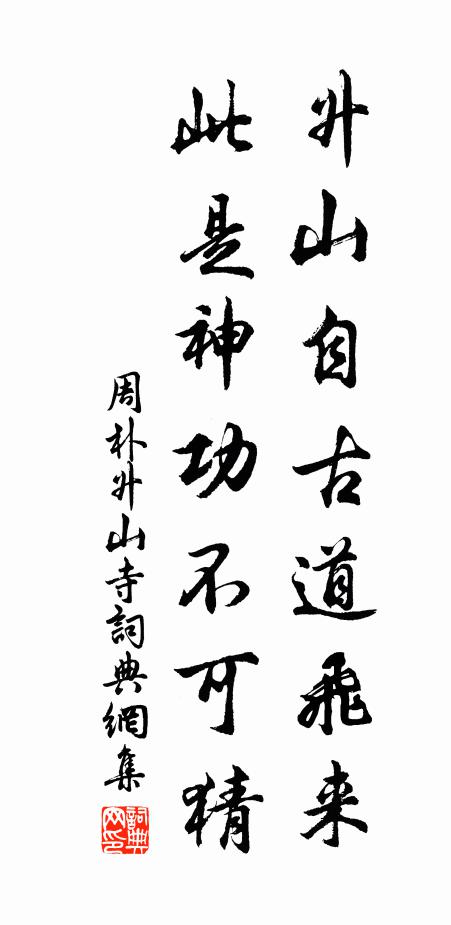 升山自古道飛来
此是神功不可猜
周朴升山寺詞典網集
詞典网印